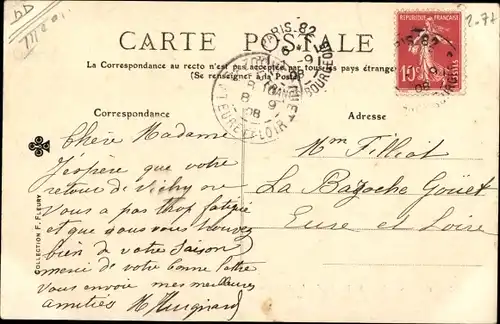 2-77
CARTE POSTALE
La Correspondance au recto n'est pas acceptée par tous les pays étrangers
(Se renseigner à la Poste)
PARIS-82
6
9
08
BOURGEOIS
EURE-ET-LOIR
8
9
08
REPUBLIQUE FRANCAISE
10
POSTES
PARIS-82
9
08
Correspondance
Adresse
Chère Madame
J'espère que votre
retour de Vichy ne
vous a pas trop fatiguée
et que vous vous trouvez
bien de votre saison
merci de votre bonne lettre
vous envoie mes meilleures
amitiés
Mme Filliol
La Bazoche Gouët
Eure et Loire
COLLECTION F. FLEURY